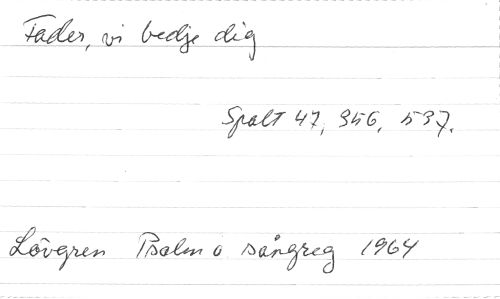 Fader, vi bedje dig
Spalt 47, 356, 537.
Lövgren Psalm o sångreg 1964